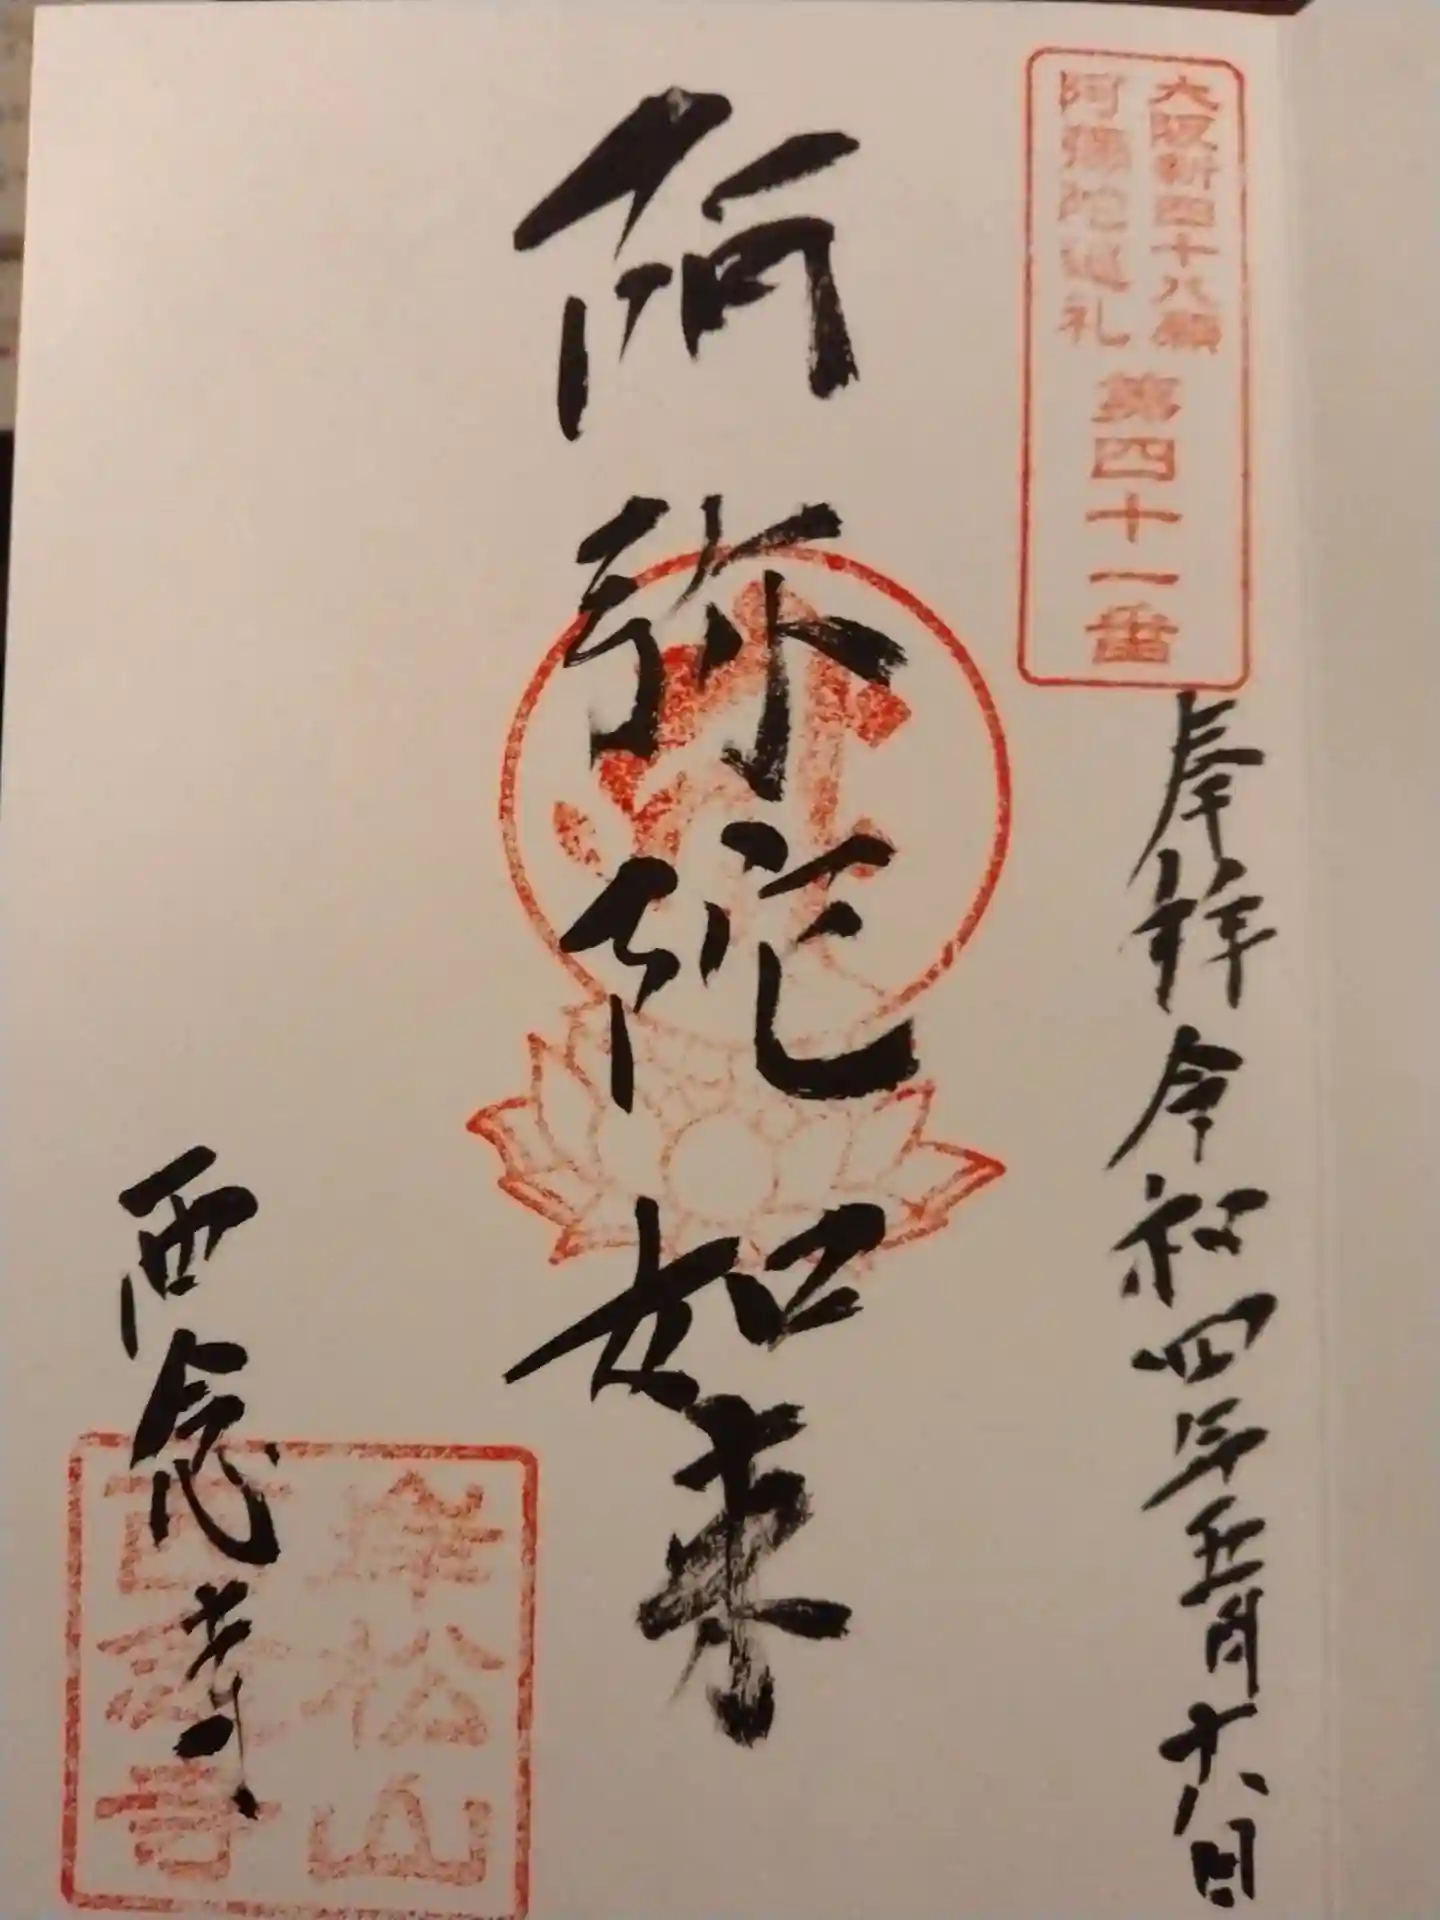 大阪新四十八願
阿彌陀巡礼
第四十一番
奉拝 令和四年五月十八日
阿弥陀如来
西念寺
峯松山
西念寺